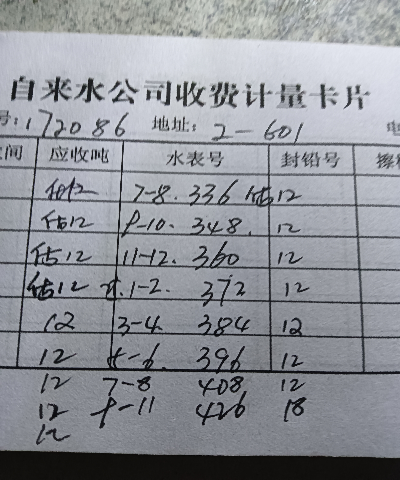 自来水公司收费计量卡片
号:172086 地址: 2-601
间 应收吨 水表号 封铅号
估12 7-8. 336 估12
估12 9-10. 348. 12
估12 11-12. 360 12
估12 1-2. 372 12
12 3-4. 384 12
12 5-6. 396 12
12 7-8 408 12
12 9-11 426 18
12